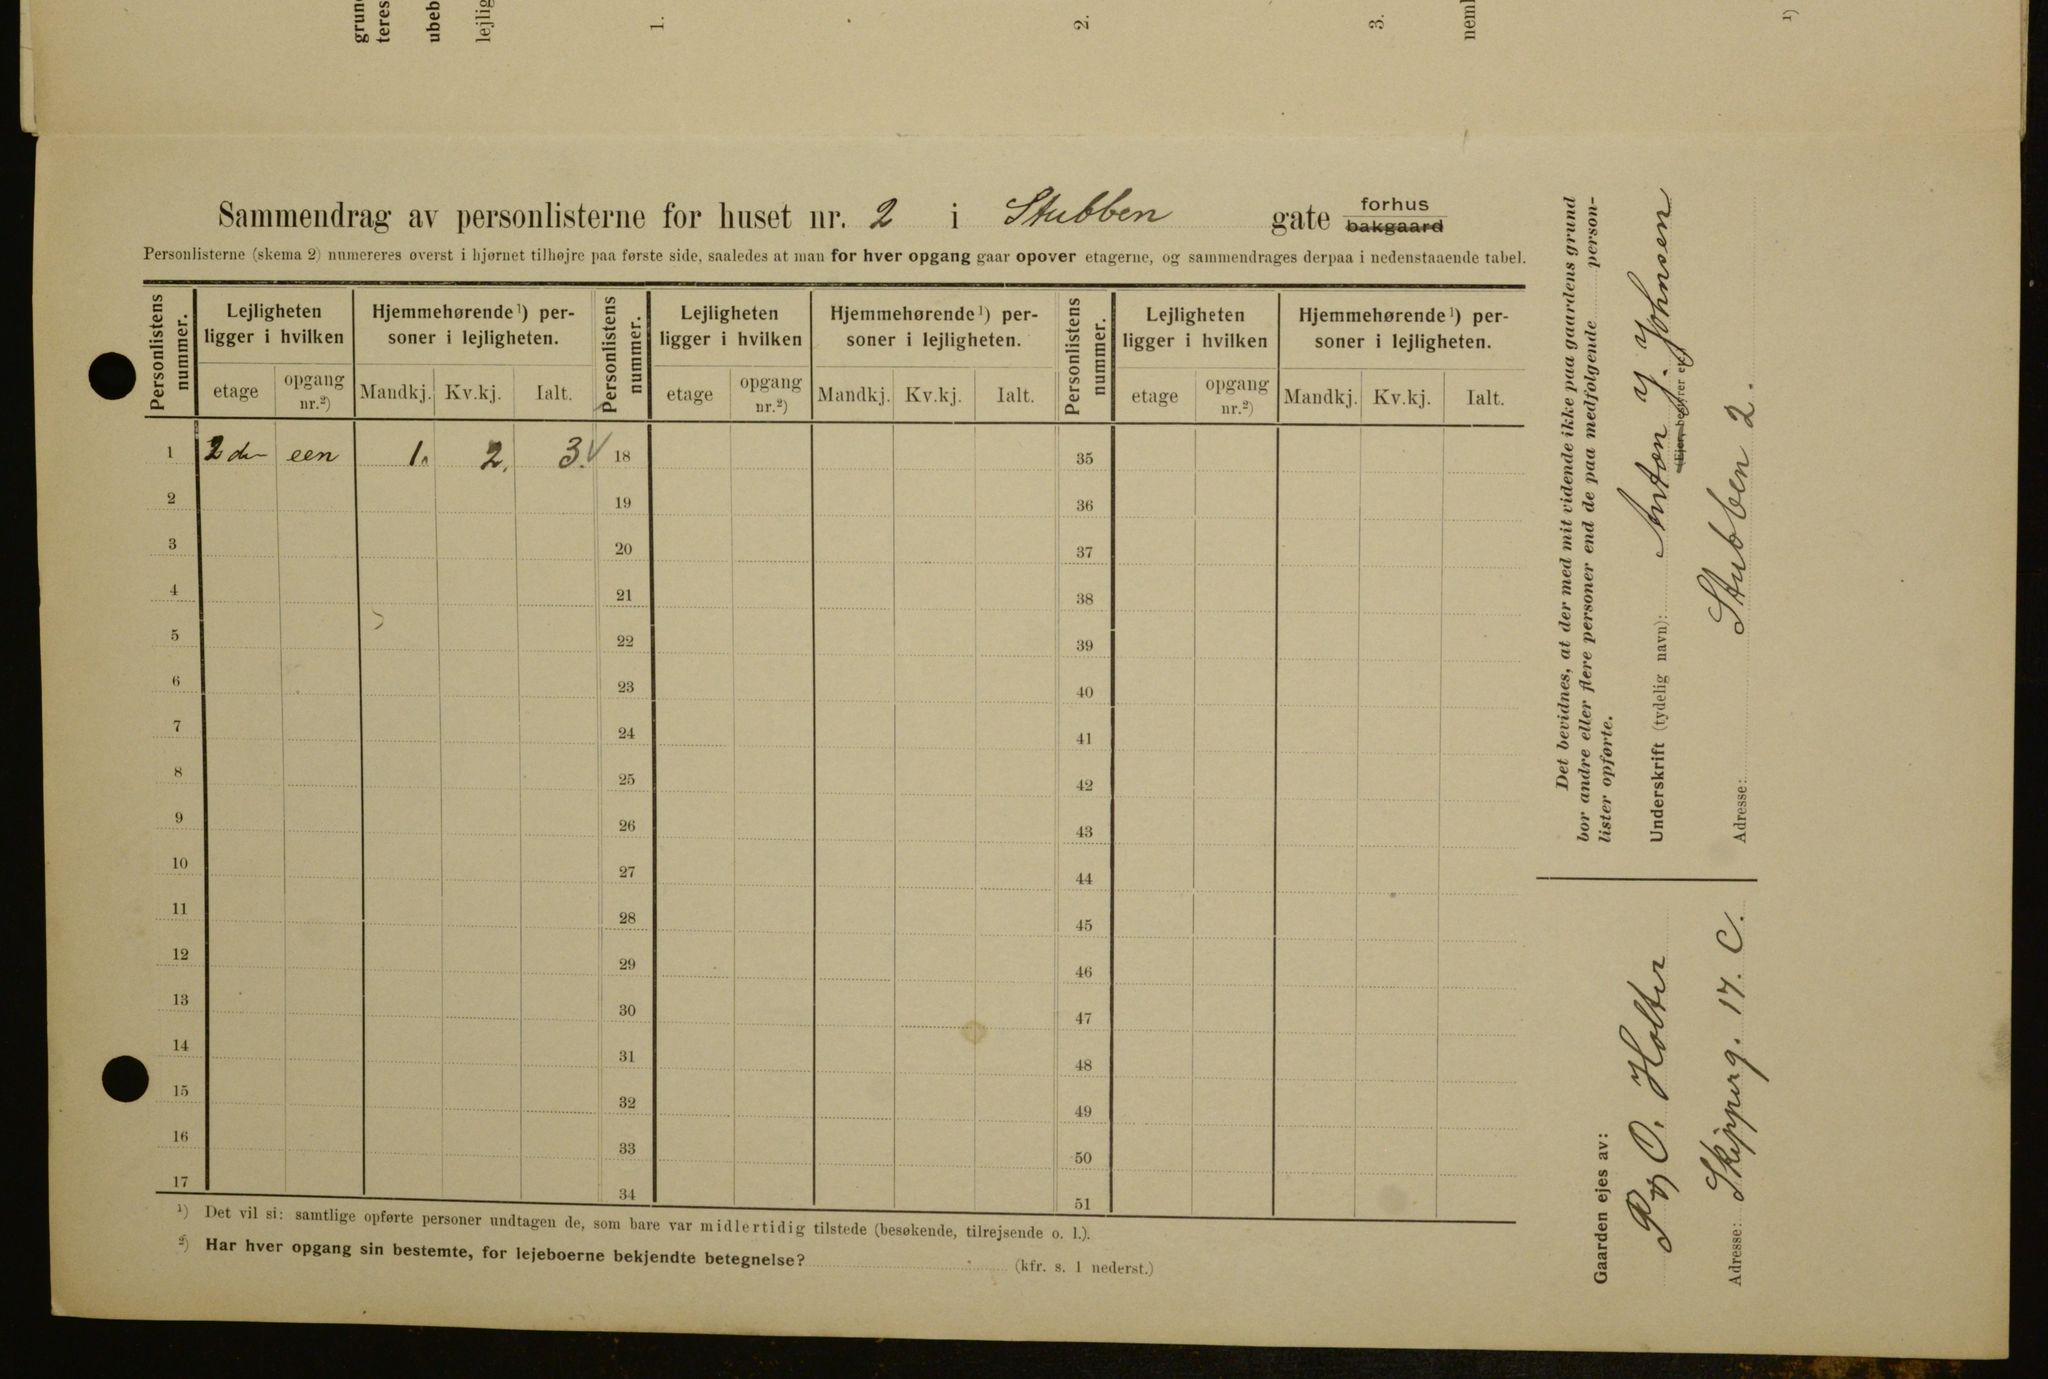 grun
teres
ubeb
lejlig
1.
2.
3.
neml
1)
Sammendrag av personlisterne for huset nr. 2 i Stubben gate forhus bakgaard
Personlisterne (skema 2) numereres øverst i hjørnet tilhøjre paa første side, saaledes at man for hver opgang gaar opover etagerne, og sammendrages derpaa i nedenstaaende tabel.
Personlistens nummer. Lejligheten ligger i hvilken Hjemmehørende 1) personer i lejligheten. Personlistens nummer. Lejligheten ligger i hvilken Hjemmehørende 1) personer i lejligheten. Personlistens nummer. Lejligheten ligger i hvilken Hjemmehørende 1) personer i lejligheten.
etage opgang nr.2) Mandkj. Kv.kj. Ialt. etage opgang nr.2) Mandkj. Kv.kj. Ialt. etage opgang nr.2) Mandkj. Kv.kj. Ialt.
1 2den een 1. 2. 3. 18 35
2 19 36
3 20 37
4 21 38
5 22 39
6 23 40
7 24 41
8 25 42
9 26 43
10 27 44
11 28 45
12 29 46
13 30 47
14 31 48
15 32 49
16 33 50
17 34 51
1) Det vil si: samtlige opførte personer undtagen de, som bare var midlertidig tilstede (besøkende, tilrejsende o. l.).
2) Har hver opgang sin bestemte, for lejeboerne bekjendte betegnelse? (kfr. s. 1 nederst.)
Det bevidnes, at der med mit vidende ikke paa gaardens grund
bor andre eller flere personer end de paa medfølgende person-
lister opførte.
Underskrift (tydelig navn): Anton Y. Johnsen
(Ejer, bestyrer el.
Adresse: Stubben 2.
Gaarden ejes av:
P O. Holter
Adresse: Skipperg. 17. C.